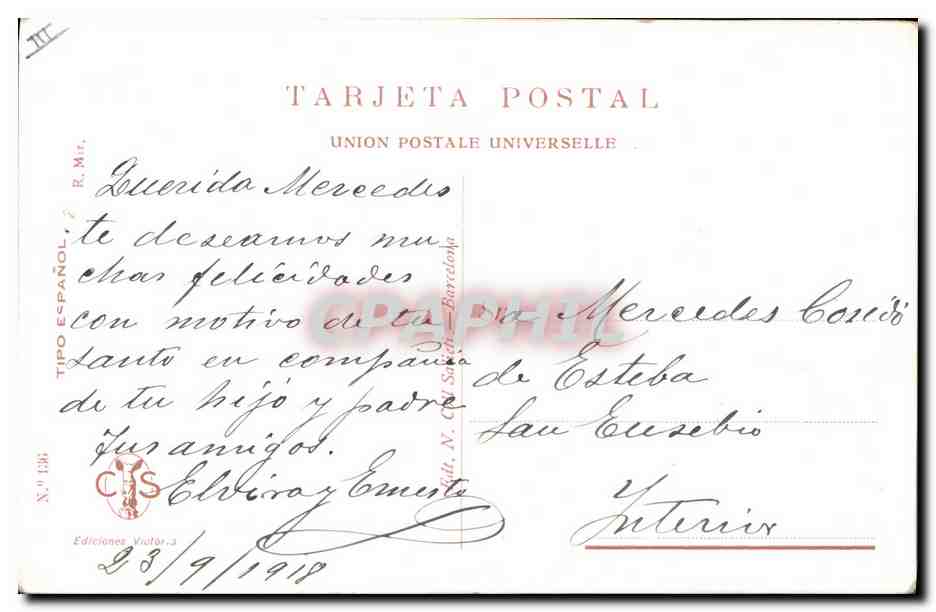 III
TARJETA POSTAL
UNION POSTALE UNIVERSELLE
Querida Mercedes
te deseamos mu
chas felicidades
con motivo de tu
santo en compañia
de tu hijo y padre
Tus amigos.
Elvira y Ernesto
23/9/1918
Da Mercedes
de Esteba
San Eusebio
Interior
R. Mir.
TIPO ESPAÑOL.
N.º 136
CS
Ediciones Victoria
Edt. N. Coll Salieti Barcelona
CPAPHIL